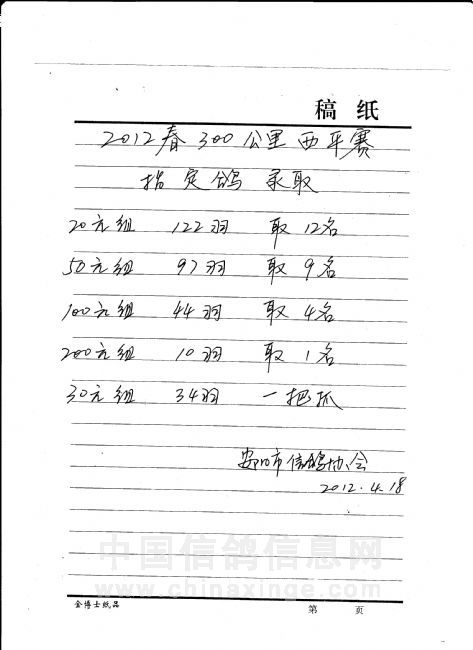 稿 纸
2012春300公里西平赛
指定鸽 录取
20元组 122羽 取12名
50元组 97羽 取9名
100元组 44羽 取4名
200元组 10羽 取1名
30元组 34羽 一把抓
安阳市信鸽协会
2012.4.18
中国信鸽信息网
www.chinaxinge.com
金博士纸品 第 页